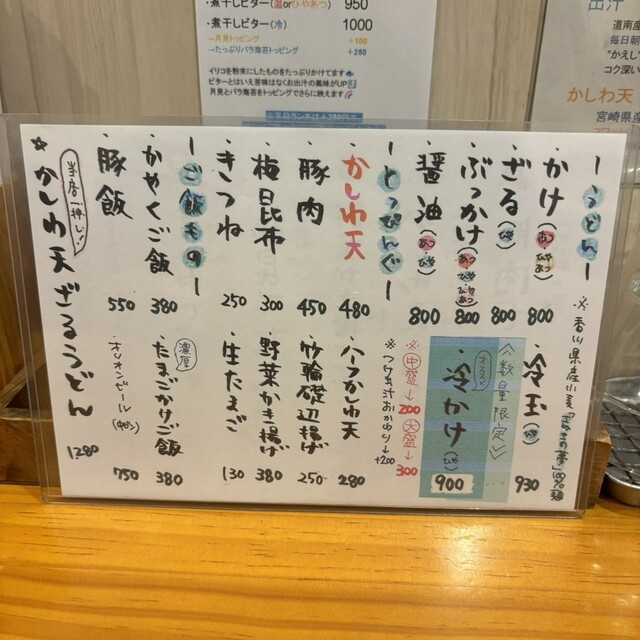 ・煮干しビター(温orひやあつ) 950
・煮干しビター(冷) 1000
→月見トッピング +100
→たっぷりバラ海苔トッピング +250
イリコを粉末にしたものをたっぷりかけてます
ビターとはいえ苦味はなくお出汁の風味がUP
月見とバラ海苔をトッピングでさらに映えます
出汁
道南産
毎日朝
"かえし"
コク深い
かしわ天
宮崎県産
ーうどんー
※香川県産小麦
100%麺
・かけ(あつ ひやあつ) 800
・ざる(ひや) 800
・ぶっかけ(あつ ひや ひやあつ) 800
・醤油(あつ ひや) 800
・冷玉(ひや) 930
数量限定
オススメ
・冷かけ(ひや) 900
※中盛→200 大盛→300
※つけ出汁おかわり→+200
ーとっぴんぐー
・かしわ天 480
・豚肉 450
・梅昆布 300
・きつね 250
・ハーフかしわ天 280
・竹輪磯辺揚げ 250
・野菜かき揚げ 380
・生たまご 130
ーご飯ものー
・かやくご飯 380
・豚飯 550
濃厚
・たまごかけご飯 380
・オリオンビール(中ビン) 750
当店一押し!
★かしわ天ざるうどん 1280